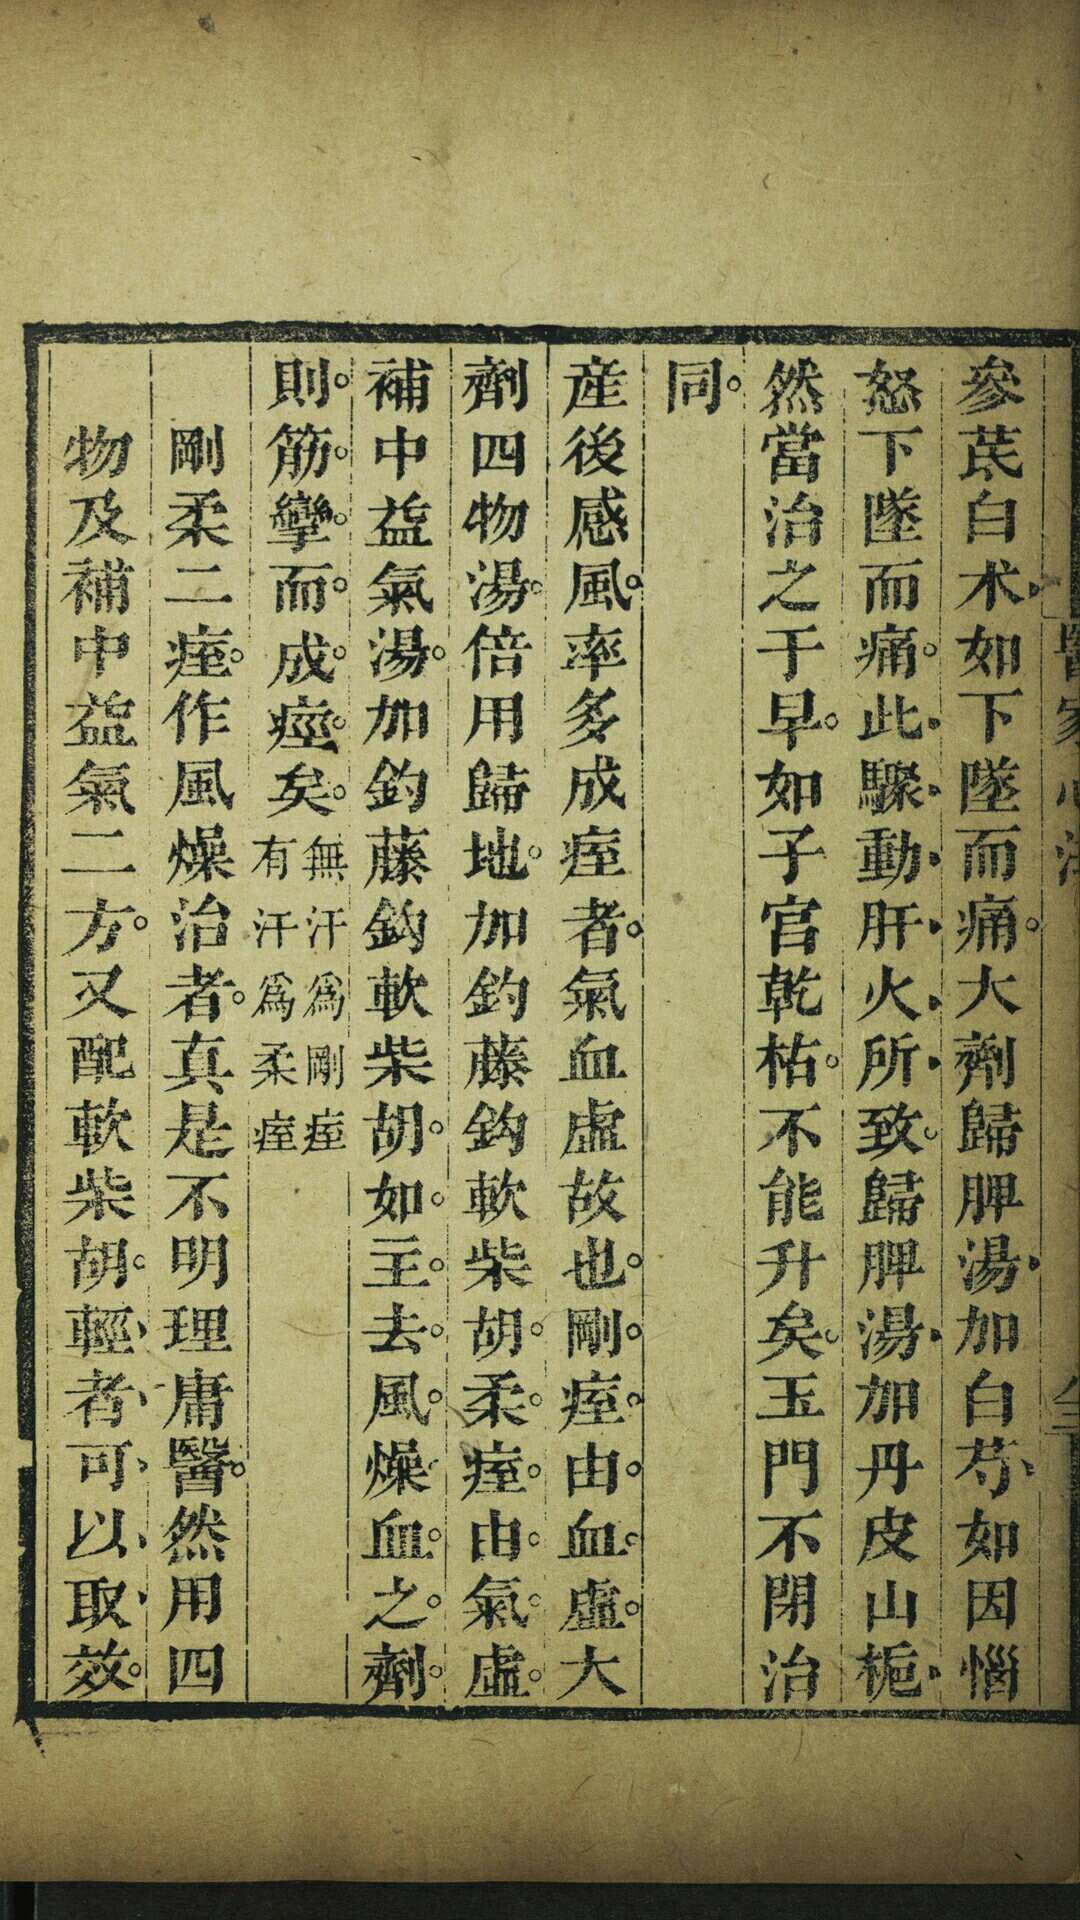 醫家心法
參芪白术如下墜而痛大劑歸脾湯加白芍如因惱
怒下墜而痛此驟動肝火所致歸脾湯加丹皮山梔
然當治之于早如子宮乾枯不能升矣玉門不閉治
同
產後感風率多成痓者氣血虛故也剛痓由血虛大
劑四物湯倍用歸地加鈞藤鈎軟柴胡柔痓由氣虛
補中益氣湯加鈞藤鈎軟柴胡如主去風燥血之劑
則筋攣而成痙矣無汗爲剛痓
有汗爲柔痓
剛柔二痓作風燥治者真是不明理庸醫然用四
物及補中益氣二方又配軟柴胡輕者可以取效